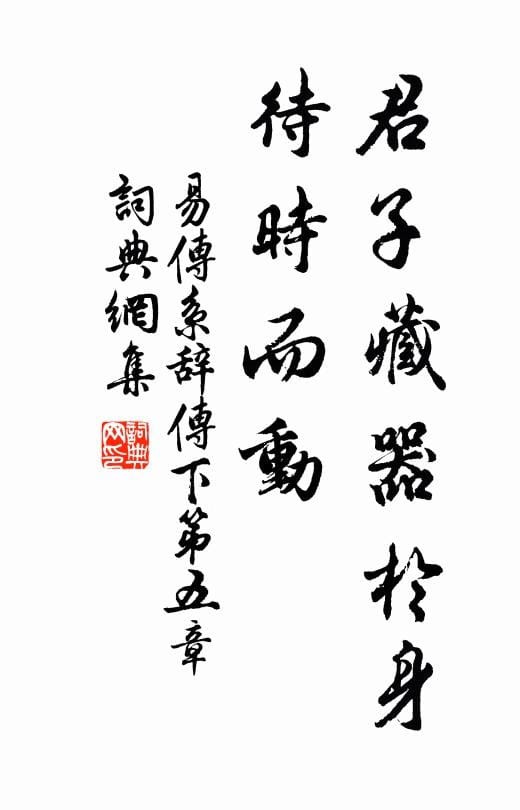 君子藏器於身
待時而動
易傳系辞傳下第五章
詞典網集
詞典
网印